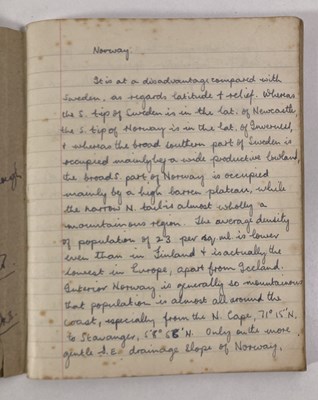 Norway.
It is at a disadvantage compared with
Sweden, as regards latitude & relief. Whereas
the S. tip of Sweden is in the lat. of Newcastle,
the S. tip of Norway is in the lat. of Inverness,
& whereas the broad southern part of Sweden is
occupied mainly by a wide productive lowland,
the broad S. part of Norway is occupied
mainly by a high barren plateau, while
the narrow N. tail is almost wholly a
mountainous region. The average density
of population of 23 per sq. ml. is lower
even than in Finland & is actually the
lowest in Europe, apart from Iceland.
Interior Norway is generally so mountainous
that population is almost all around the
coast, especially from the N. Cape, 71° 15' N.
to Stavanger, 58° N. Only on the more
gentle S.E. drainage slope of Norway,